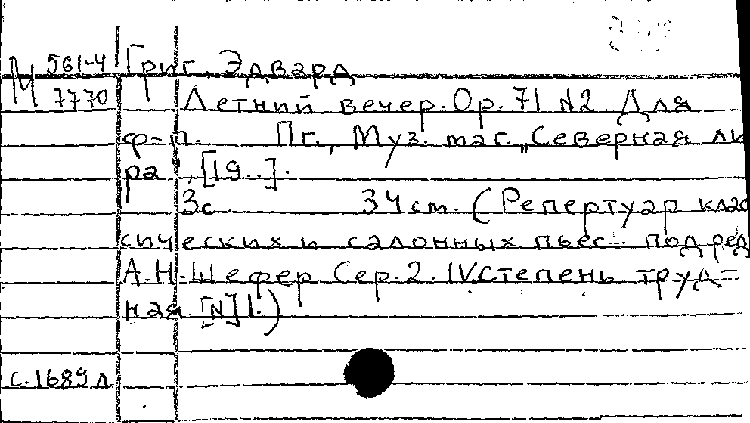 М 561-4 Григ, Эдвард
7770 Летний вечер. Op. 71 N2 Для
ф-п. Пг., Муз. маг. „Северная ли
ра", [19..].
3с 34 см. (Репертуар клас
сических и салонных пьес под ред
А.Н. Шефер Сер. 2. IV степень труд=
ная [N] 1.)
с. 1689 л